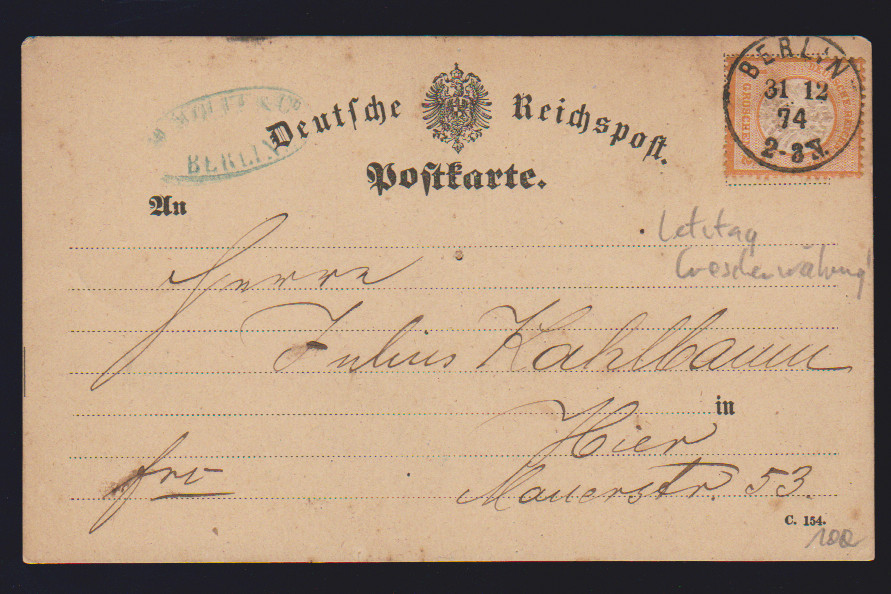 Deutsche Reichspost.
Postkarte.
& Co
BERLIN
BERLIN
31 12
74
2-3 N.
GROSCHEN
An
Letztag
Groschenwährung!
Herrn
Julius Kahlbaum
in
Hier
Mauerstr. 53.
fro
C. 154.
100